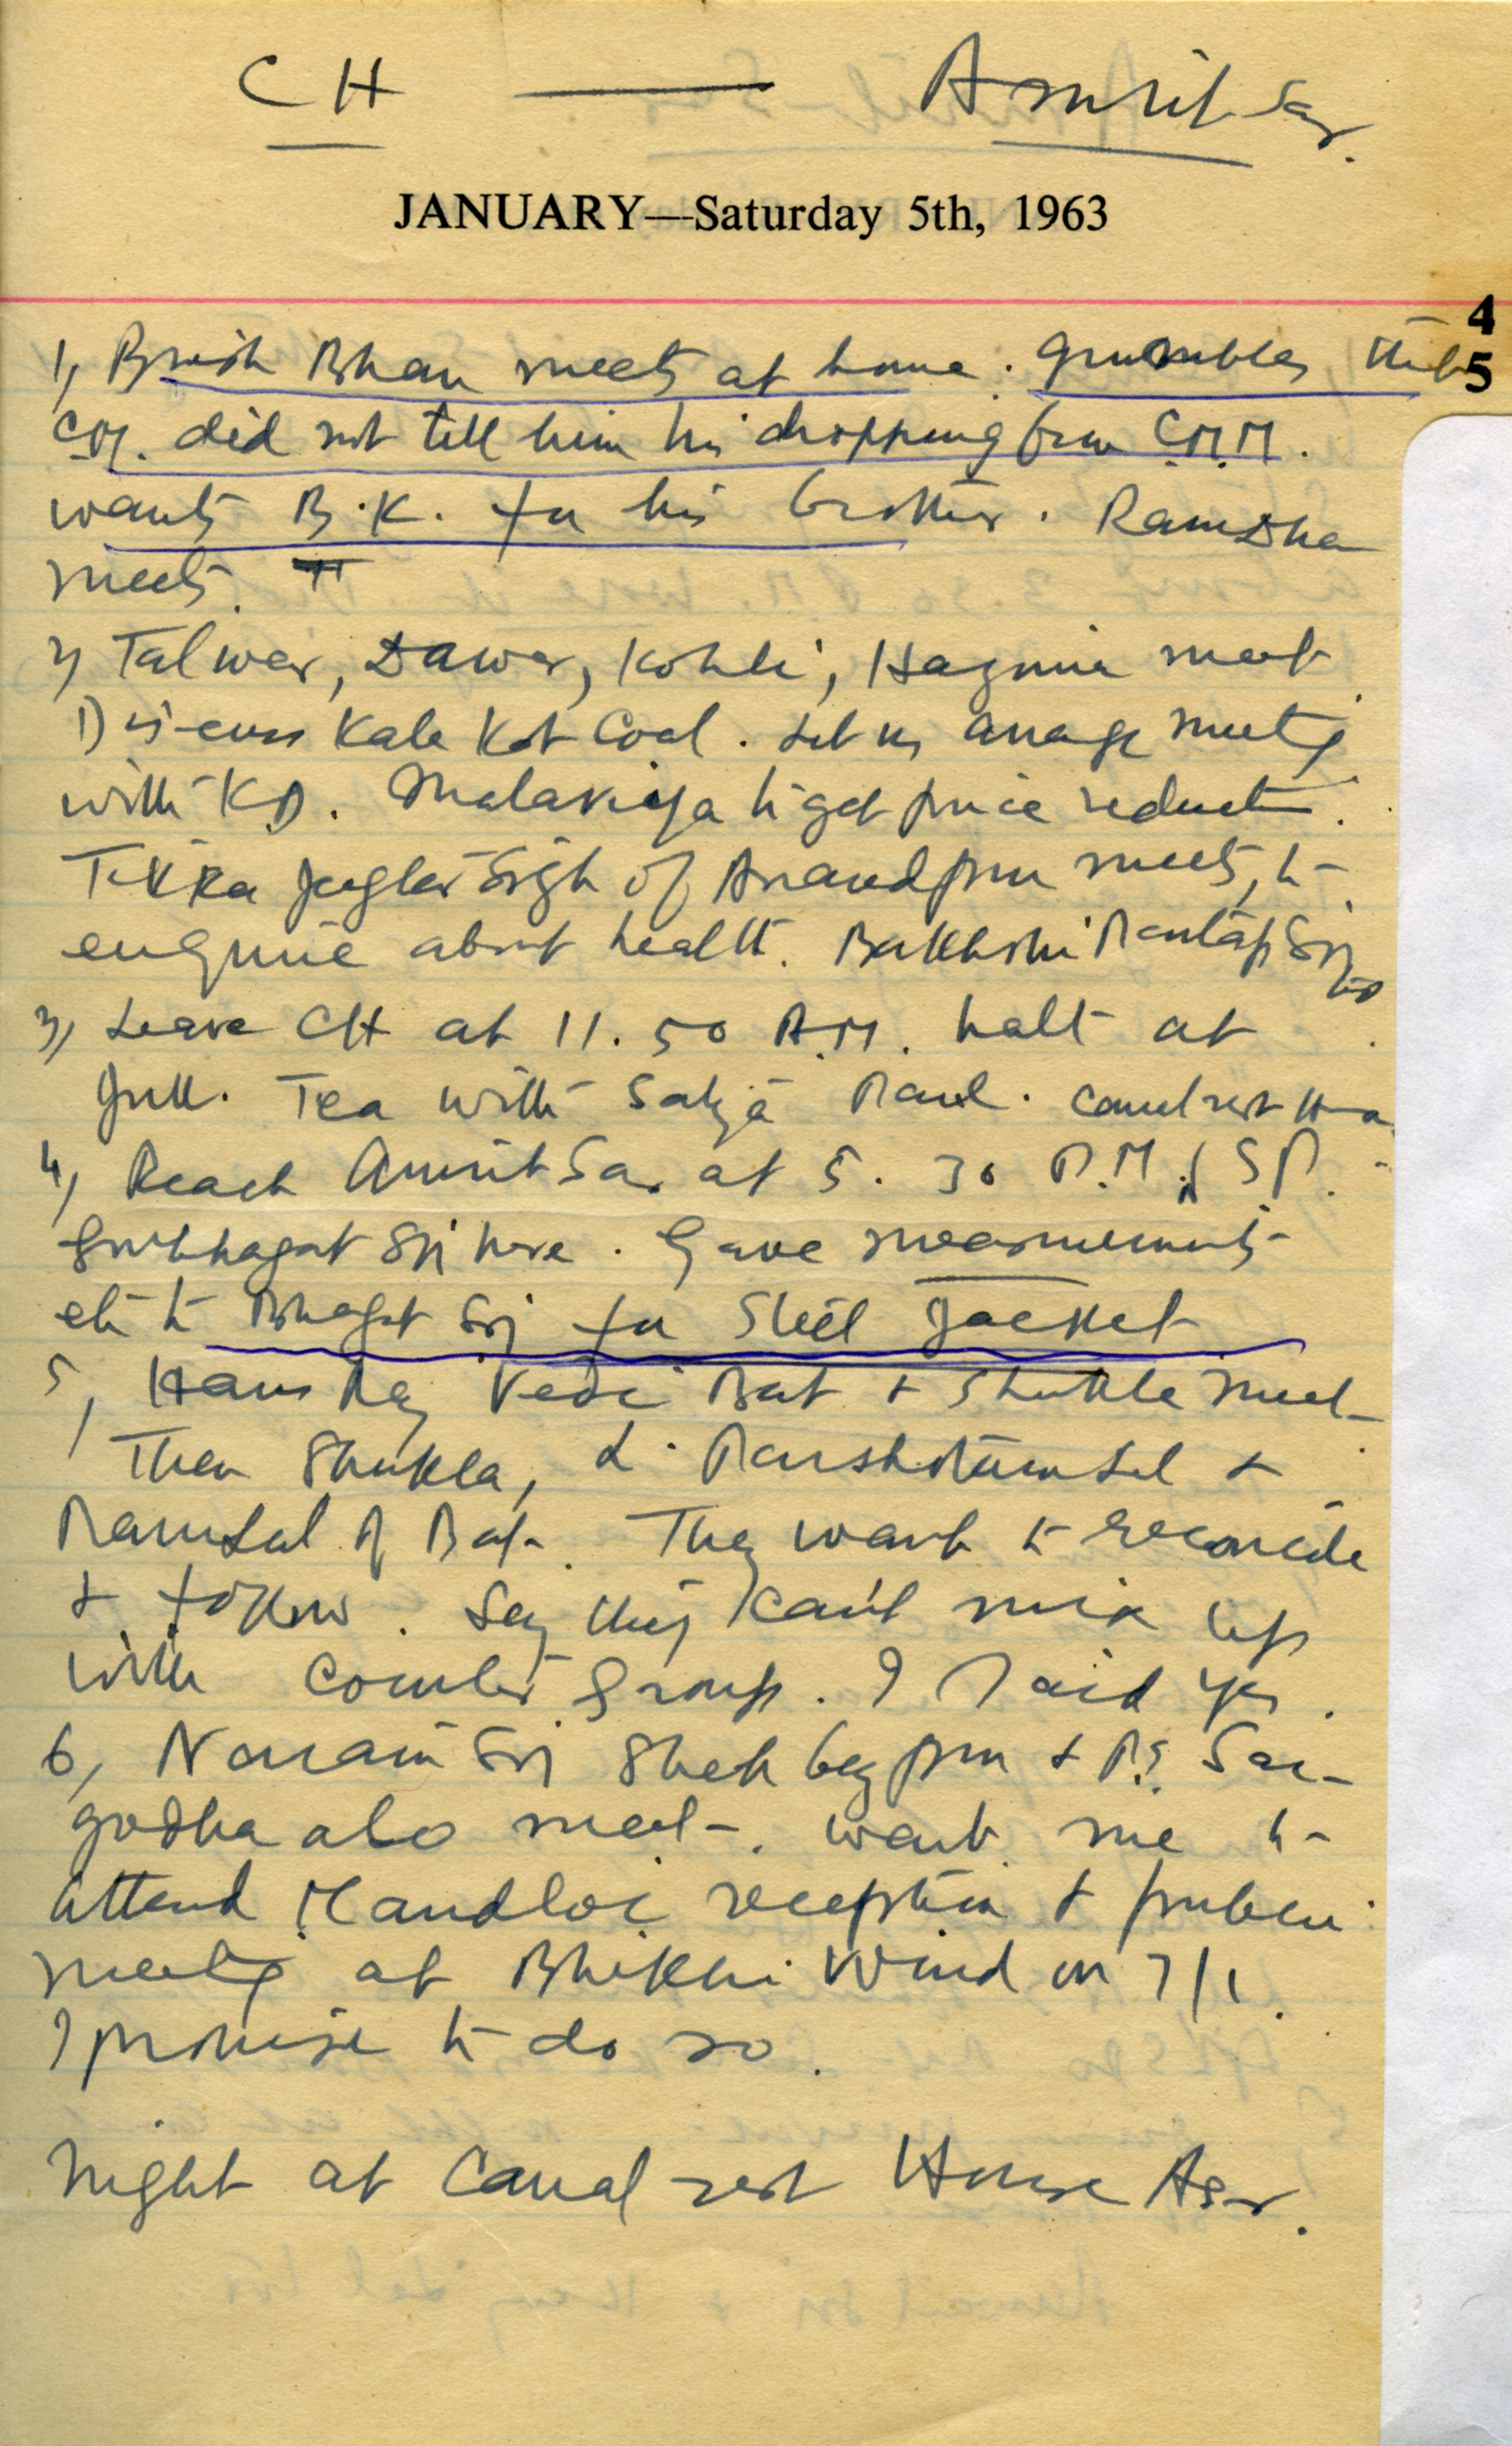 CH — Amritsar.
JANUARY—Saturday 5th, 1963
4
5
1, Brish Bhan meets at home. grumbles that
CM. did not tell him his dropping from C.M.M.
wants B.K. for his brother. Ram
meets.
2, Talwar, Dawar, Kohli, meet
Discuss Kala Kot Coal. Let us arrange meeting
with K.D. Malaviya to get price reduction.
Tikka Singh of Anandpur meets, to
enquire about health. Bakhshi Partap Singh
3, Leave CH at 11.50 A.M. halt at
Jull. Tea with Satya Paul. Canal rest
4, Reach AmritSar at 5.30 P.M. SP.
Gurbhagat Sgh here. Gave measurements
etc to Bhagat Sgh for Steel Jacket
5, Hans Raj Vedi Bat & Shukla meet
Then Shukla, L. Parshotam Lal &
Ram Lal of Bat. They want to reconcile
& follow. Say they can't mix up
with Counter Group. I said yes.
6, Narain Sgh Shahbazpur & P.S. Sar-
godha also meet. want me to
attend Mandloi reception & public
meeting at Bhikhi Wind on 7/1.
I promise to do so.
Night at Canal rest House Asr.